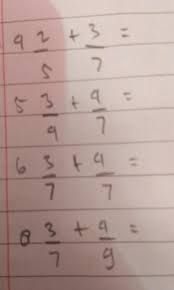 9 2/5 + 3/7 =
5 3/9 + 9/7 =
6 3/7 + 9/7 =
8 3/7 + 9/9 =